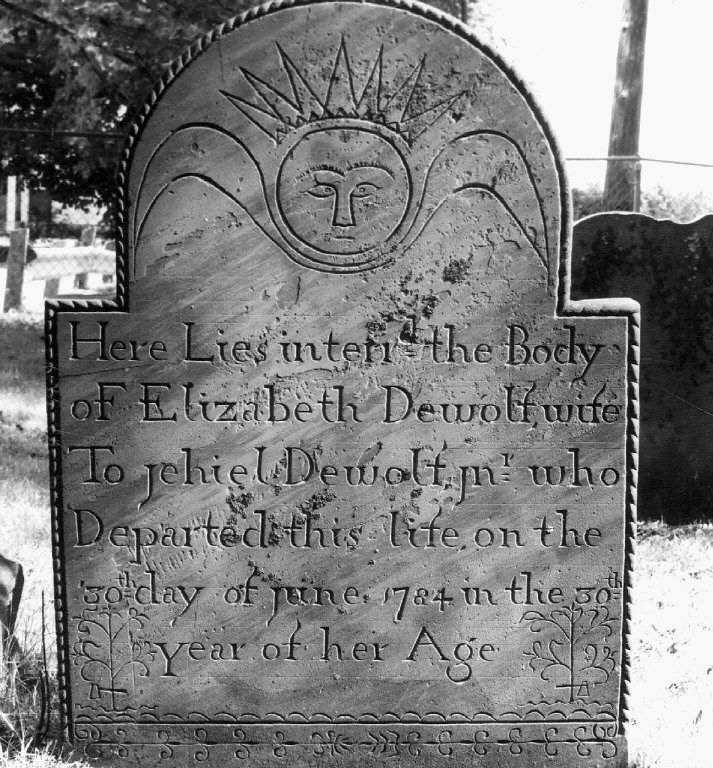 Here Lies interrᵈ the Body
oF Elizabeth Dewolf, wife
To jehiel Dewolf, jnʳ who
Departed this life, on the
30ᵗʰ day of june. 1784 in the 30ᵗʰ
year of her Age